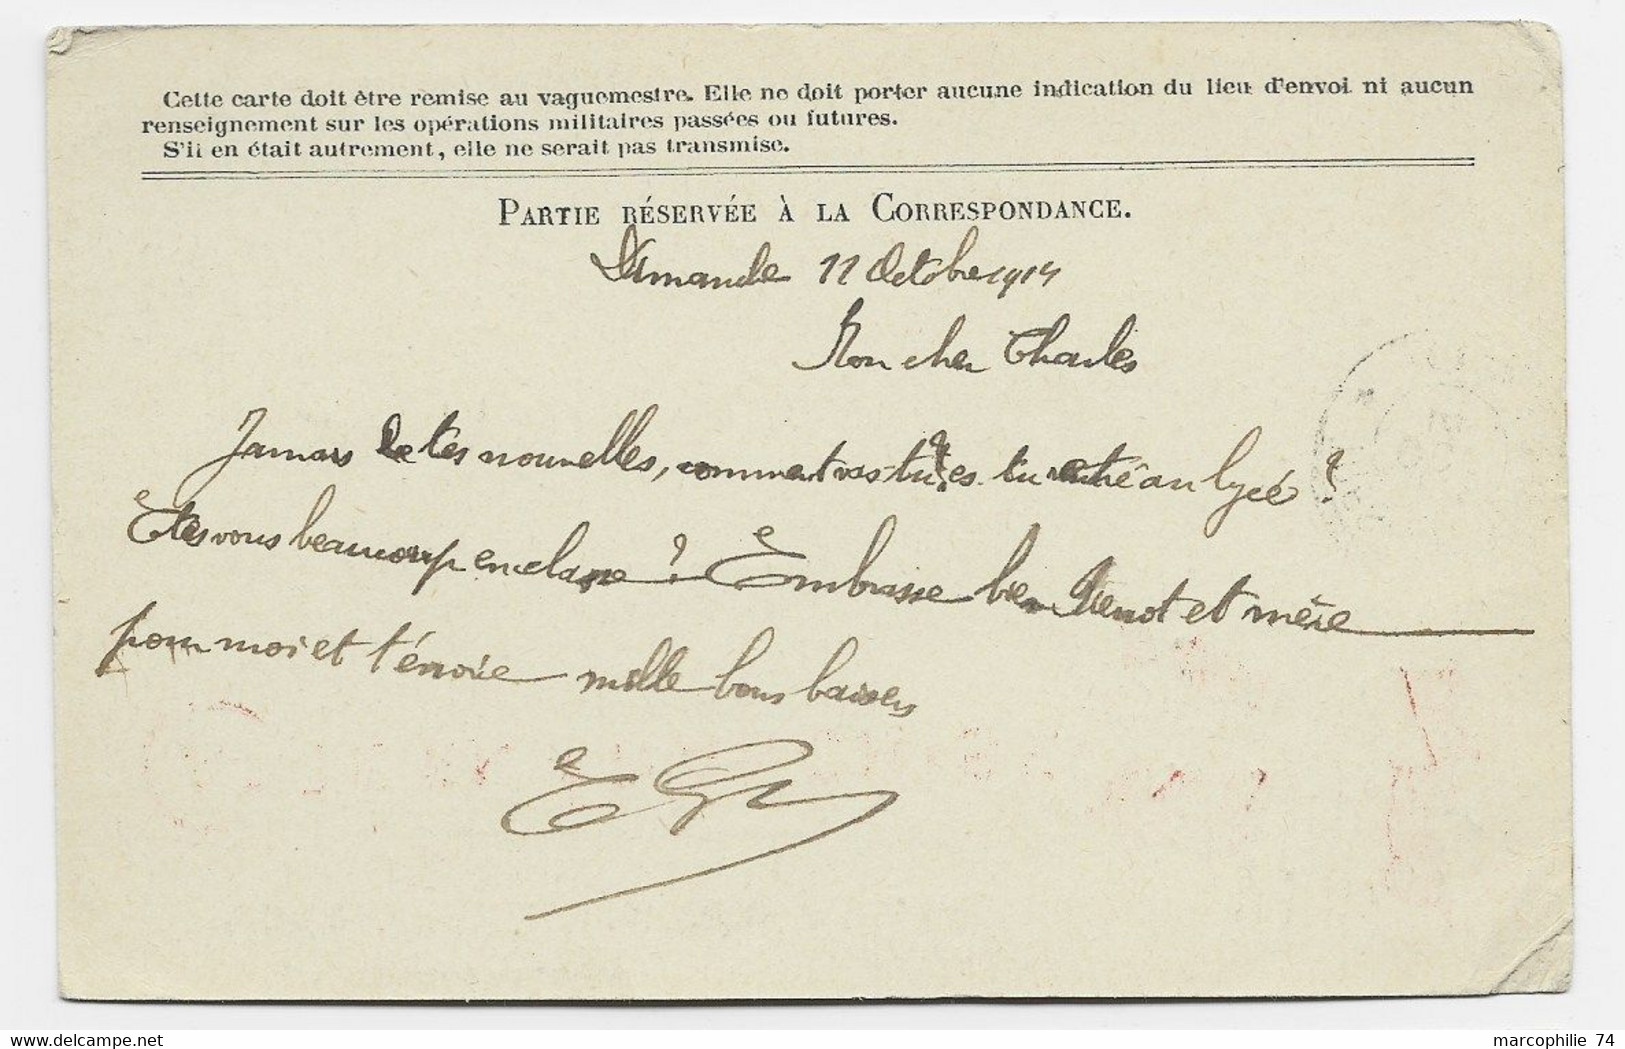 Cette carte doit être remise au vaguemestre. Elle ne doit porter aucune indication du lieu d'envoi ni aucun
renseignement sur les opérations militaires passées ou futures.
S'il en était autrement, elle ne serait pas transmise.
PARTIE RÉSERVÉE À LA CORRESPONDANCE.
Dimanche 11 Octobre 1914
Mon cher Charles
Jamais de tes nouvelles, comment vas tu?, es tu rentré au lycé ?
Etes vous beaucoup en classe ? Embrasse bien et mère
pour moi et t'énvoie mille bons baisers
marcophilie 74